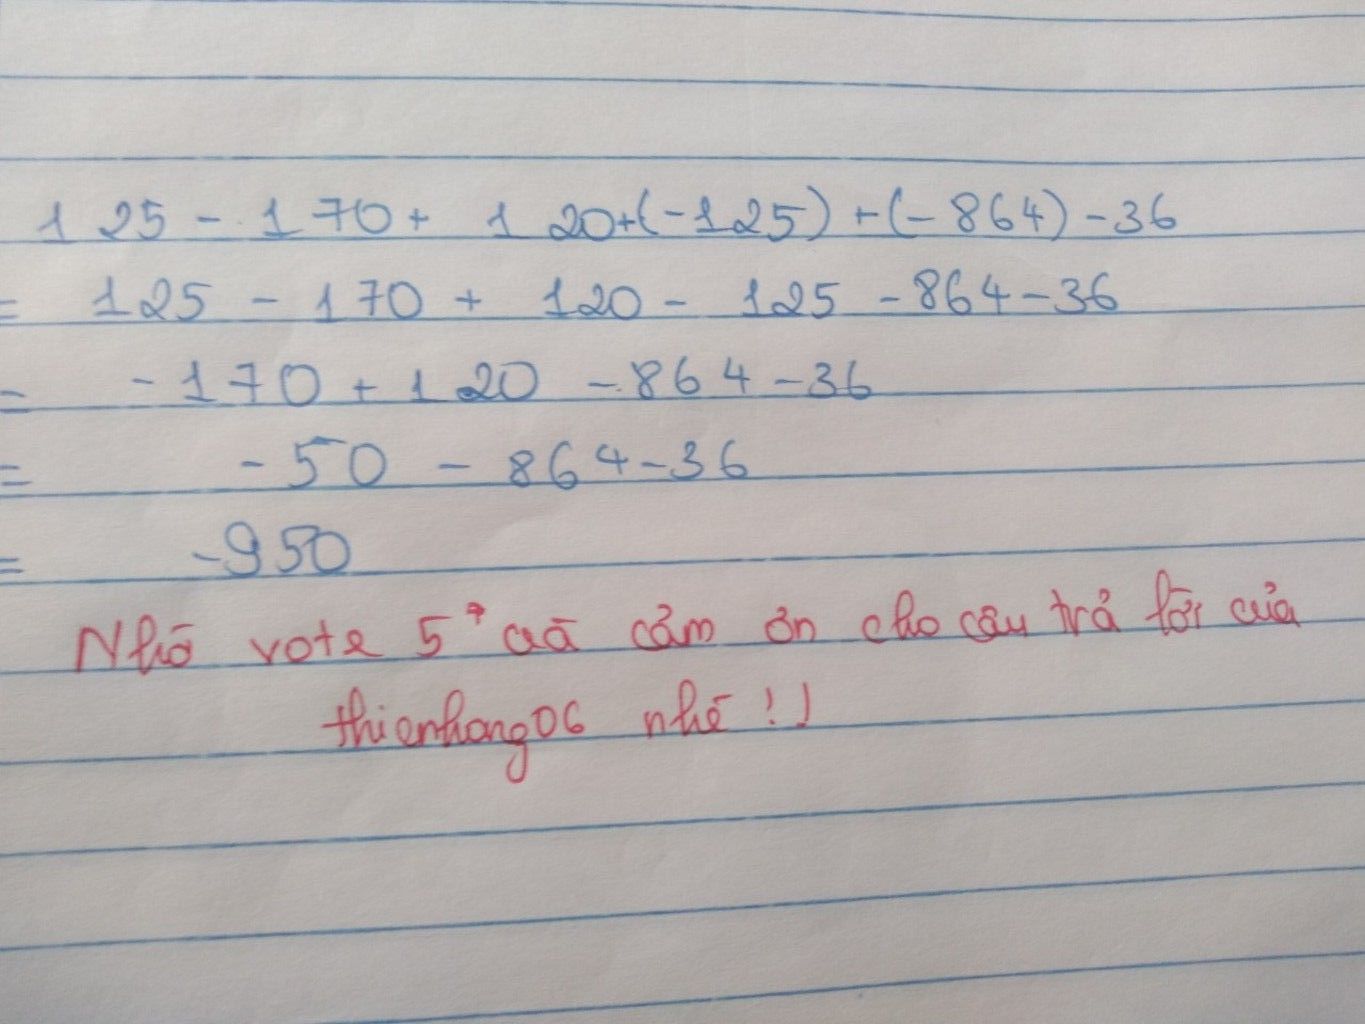 125 - 170 + 120 + (-125) + (-864) - 36
= 125 - 170 + 120 - 125 - 864 - 36
= -170 + 120 - 864 - 36
= -50 - 864 - 36
= -950
Nhớ vote 5* và cảm ơn cho câu trả lời của
thienhang06 nhé !!